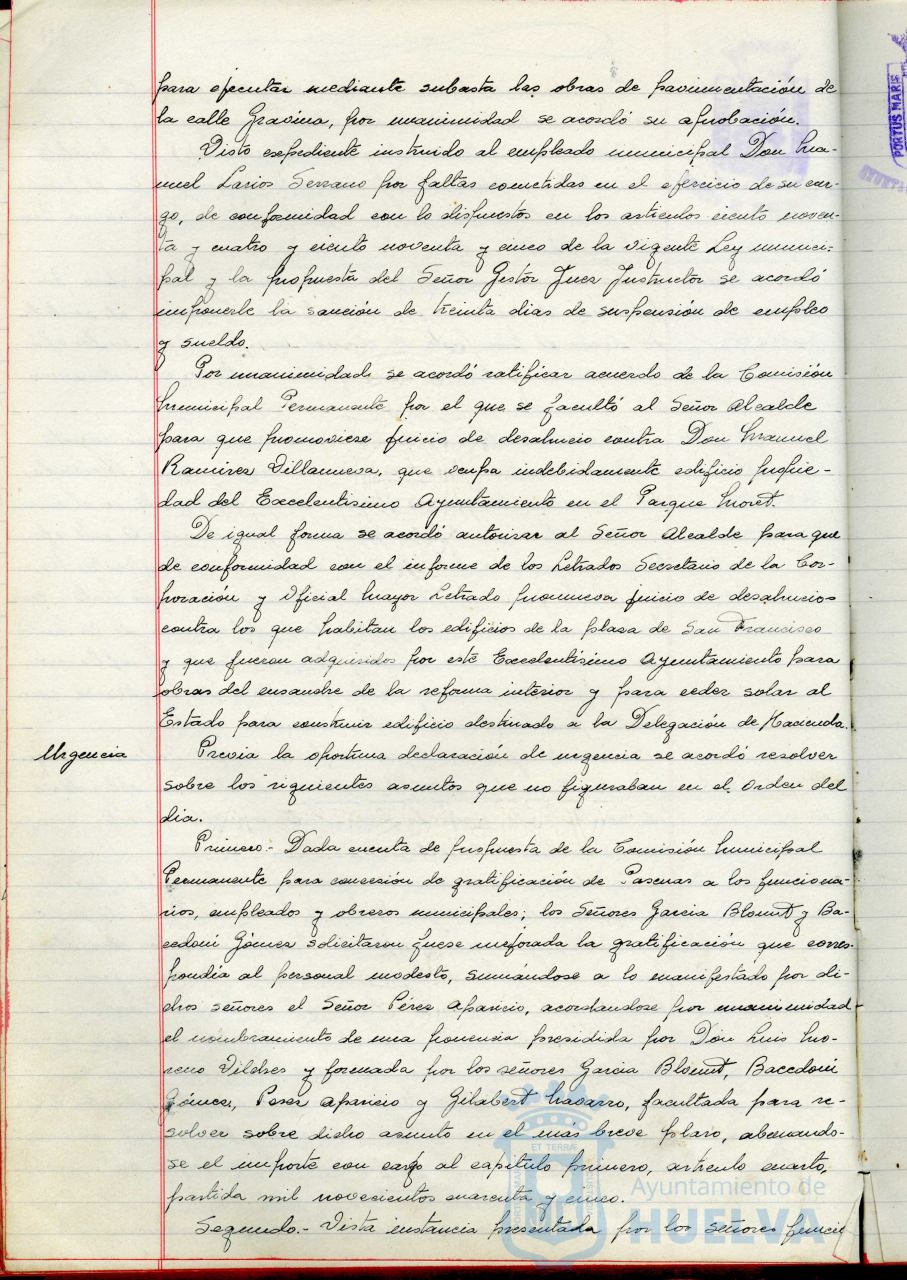 para ejecutar mediante subasta las obras de pavimentación de
la calle Gravina, por unanimidad se acordó su aprobación.
Visto expediente instruido al empleado municipal Don Ma-
nuel Larios Serrano por faltas cometidas en el ejercicio de su car-
go, de conformidad con lo dispuestos en los articulos ciento noven-
ta y cuatro y ciento noventa y cinco de la vigente Ley munici-
pal y la propuesta del Señor Gestor Juez Instructor se acordó
imponerle la sanción de treinta dias de suspensión de empleo
y sueldo.
Por unanimidad se acordó ratificar acuerdo de la Comisión
Municipal Permanente por el que se facultó al Señor Alcalde
para que promoviese juicio de desahucio contra Don Manuel
Ramirez Villanueva, que ocupa indebidamente edificio propie-
dad del Excelentisimo Ayuntamiento en el Parque Moret.
De igual forma se acordó autorizar al Señor Alcalde para que
de conformidad con el informe de los Letrados Secretario de la Cor-
poración y Oficial Mayor Letrado promueva juicio de desahucios
contra los que habitan los edificios de la plaza de San Francisco
y que fueron adquiridos por este Excelentísimo Ayuntamiento para
obras del ensanche de la reforma interior y para ceder solar al
Estado para construir edificio destinado a la Delegación de Hacienda.
Urgencia
Previa la oportuna declaración de urgencia se acordó resolver
sobre los siguientes asuntos que no figuraban en el Orden del
dia.
Primero.- Dada cuenta de propuesta de la Comisión Municipal
Permanente para concesión de gratificación de Pascuas a los funciona-
rios, empleados y obreros municipales; los Señores Garcia Blount y Ba-
cedoni Gómez solicitaron fuese mejorada la gratificación que corres-
pondia al personal modesto, sumándose a lo manifestado por di-
chos señores el Señor Pérez Aparicio, acordandose por unanimidad
el nombramiento de una ponencia presidida por Don Luis Mo-
reno Vildses y formada por los señores Garcia Blount, Bacedoni
Gómez, Perez Aparicio y Gilabert Navarro, facultada para re-
solver sobre dicho asunto en el más breve plazo, abonando-
se el importe con cargo al capitulo primero, articulo cuarto,
partida mil novecientos cuarenta y cinco.
Segundo.- Vista instancia presentada por los señores funcio
PORTUS MARIS
ET TERRÆ
Ayuntamiento de
HUELVA